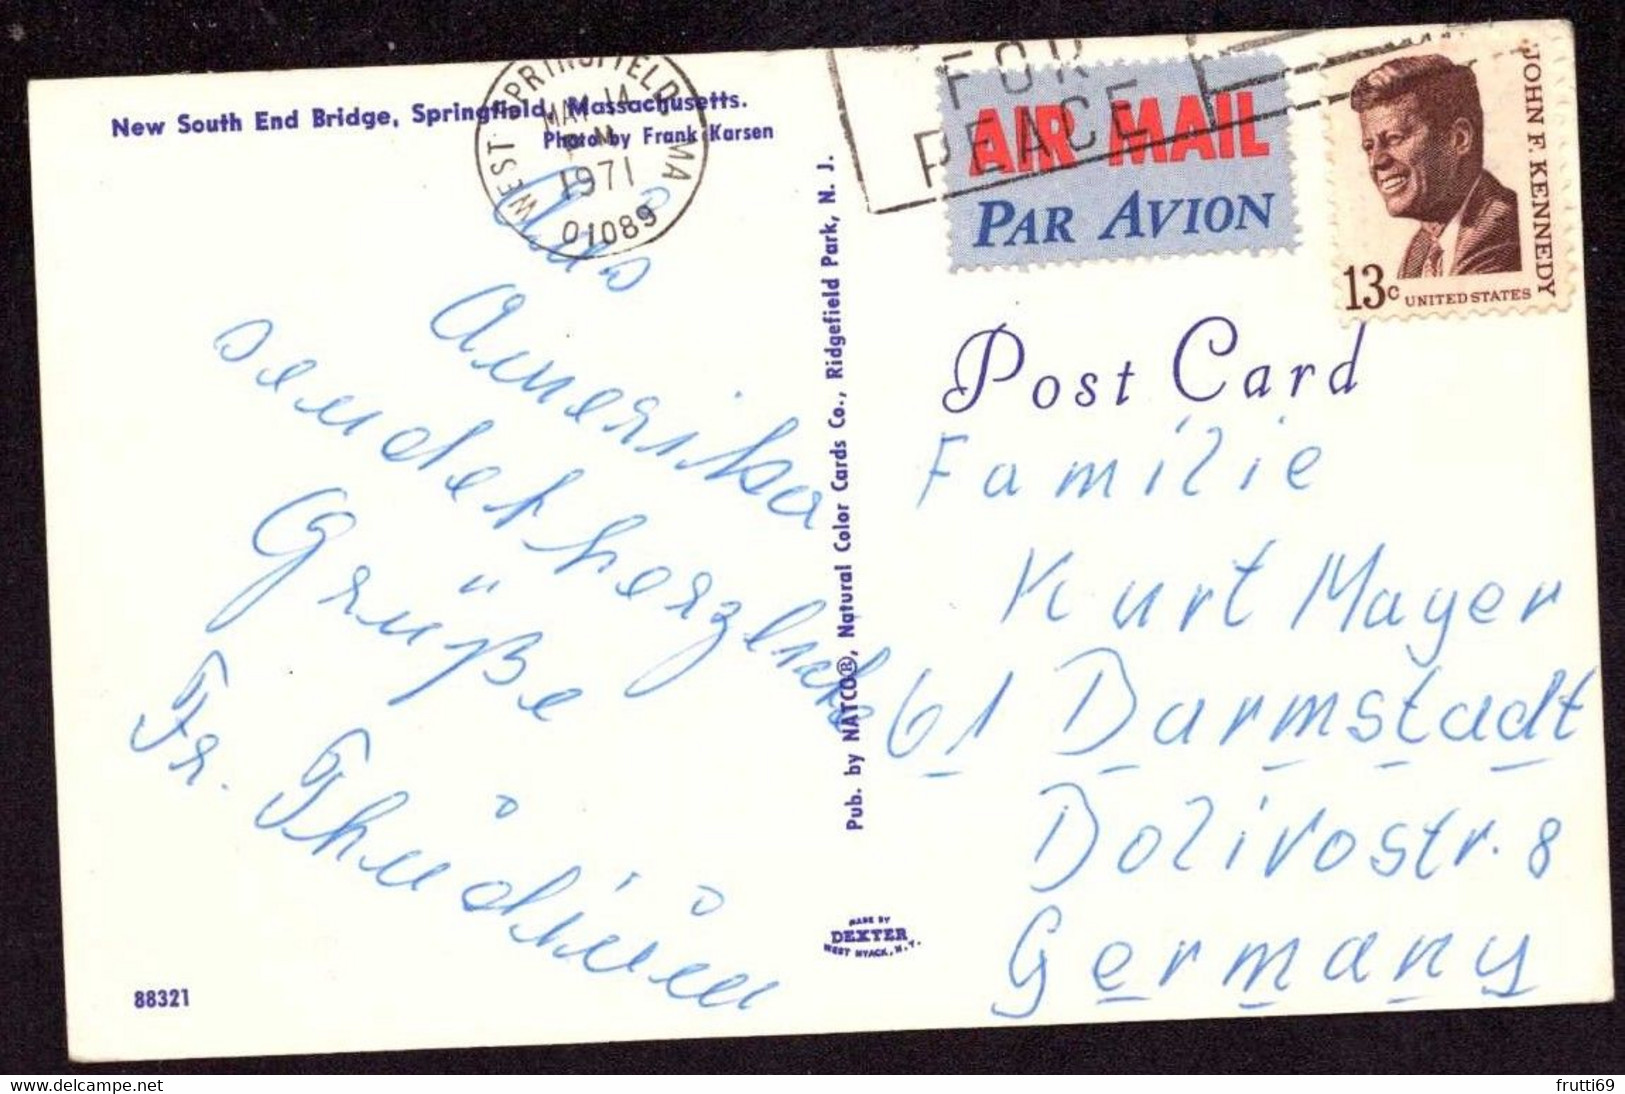 New South End Bridge, Springfield, Massachusetts.
Photo by Frank Karsen
WEST SPRINGFIELD MA
MAY 14
PM
1971
01089
FOR
PEACE
AIR MAIL
PAR AVION
JOHN F. KENNEDY
13c UNITED STATES
Post Card
Aus
Amerika
sendet herzliche
Grüße
Fr.
Familie
Kurt Mayer
61 Darmstadt
Dolivostr. 8
Germany
Pub. by NATCO®, Natural Color Cards Co., Ridgefield Park, N. J.
MADE BY
DEXTER
WEST NYACK, N.Y.
88321
frutti69